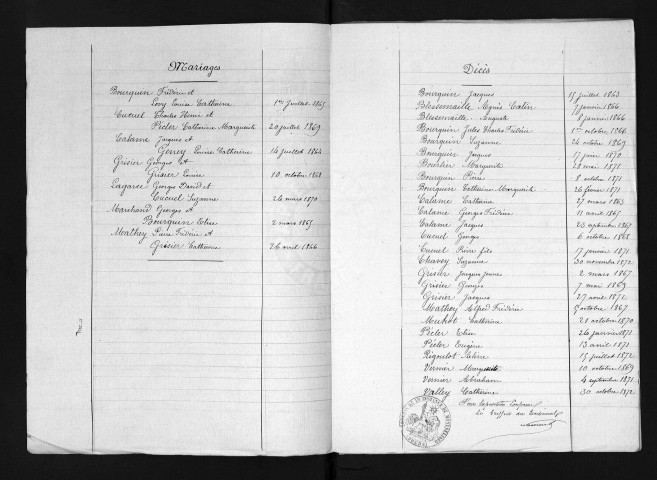 Mariages
Bourquin Frédéric et
Lovy Louise Catherine 1er Juillet 1865
Cucuel Charles Henri et
Pécler Catherine Marguerite 20 juillet 1869
Calame Jacques et
Louise Catherine 14 juillet 1864
Grisier Georges et
Grisier Louise 10 octobre 1868
Lagarce Georges David et
Cucuel Suzanne 26 mars 1870
Marchand Georges et
Bourquin Elise 2 mars 1865
Mathey Pierre Frédéric et
Grisier Catherine 26 avril 1866
Décès
Bourquin Jacques 15 juillet 1863
Blessemaille Agnès Catin 7 janvier 1866
Blessemaille Auguste 8 janvier 1866
Bourquin Jules Charles Frédéric 1er octobre 1866
Bourquin Suzanne 24 octobre 1869
Bourquin Jacques 17 juin 1870
Bourlier Marguerite 28 mai 1871
Bourquin Pierre 8 octobre 1871
Bourquin Catherine Marguerite 26 février 1871
Calame Catherine 27 mars 1863
Calame Georges Frédéric 11 août 1865
Calame Jacques 23 septembre 1867
Cucuel Georges 6 octobre 1868
Cucuel Pierre fils 17 janvier 1871
Chavey Suzanne 30 novembre 1872
Grisier Jacques jeune 2 mars 1867
Grisier Georges 7 mai 1869
Grisier Jacques 27 août 1872
Mathey Alfred Frédéric 9 octobre 1867
Catherine 21 octobre 1870
Pécler Elise 26 janvier 1871
Pécler Eugène 13 avril 1871
Rigoulot 15 juillet 1872
Vernier Marguerite 10 octobre 1869
Vernier Abraham 4 septembre 1871
Valley Catherine 30 octobre 1872
Pour Expédition Conforme
Le Greffier du Tribunal